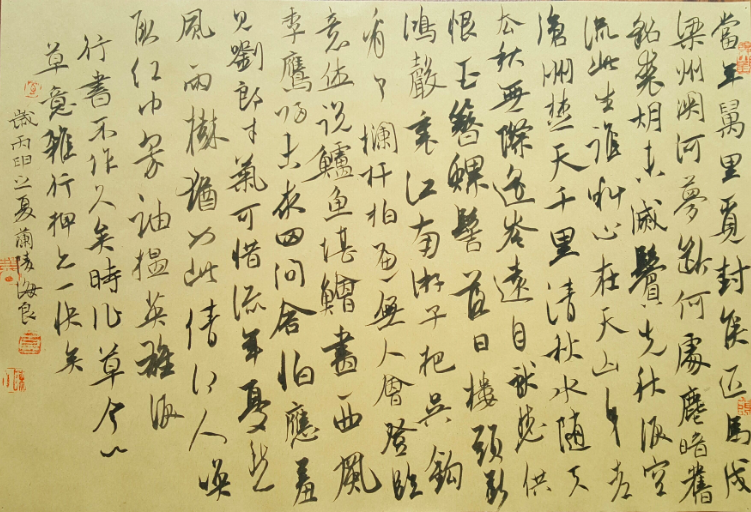 當年萬里覓封侯匹馬戍
梁州關河夢斷何處塵暗舊
貂裘胡未滅鬢先秋淚空
流此生誰料心在天山身老
滄洲楚天千里清秋水隨天
去秋無際遙岑遠目獻愁供
恨玉簪螺髻落日樓頭斷
鴻聲裏江南游子把吳鈎
看了欄杆拍遍無人會登臨
意休說鱸魚堪鱠盡西風
季鷹歸未求田問舍怕應羞
見劉郎才氣可惜流年憂愁
風雨樹猶如此倩何人喚
取紅巾翠袖揾英雄淚
行書不作久矣時作草今以
草意雜行押之一快矣
歲丙申之夏蘭陵海良